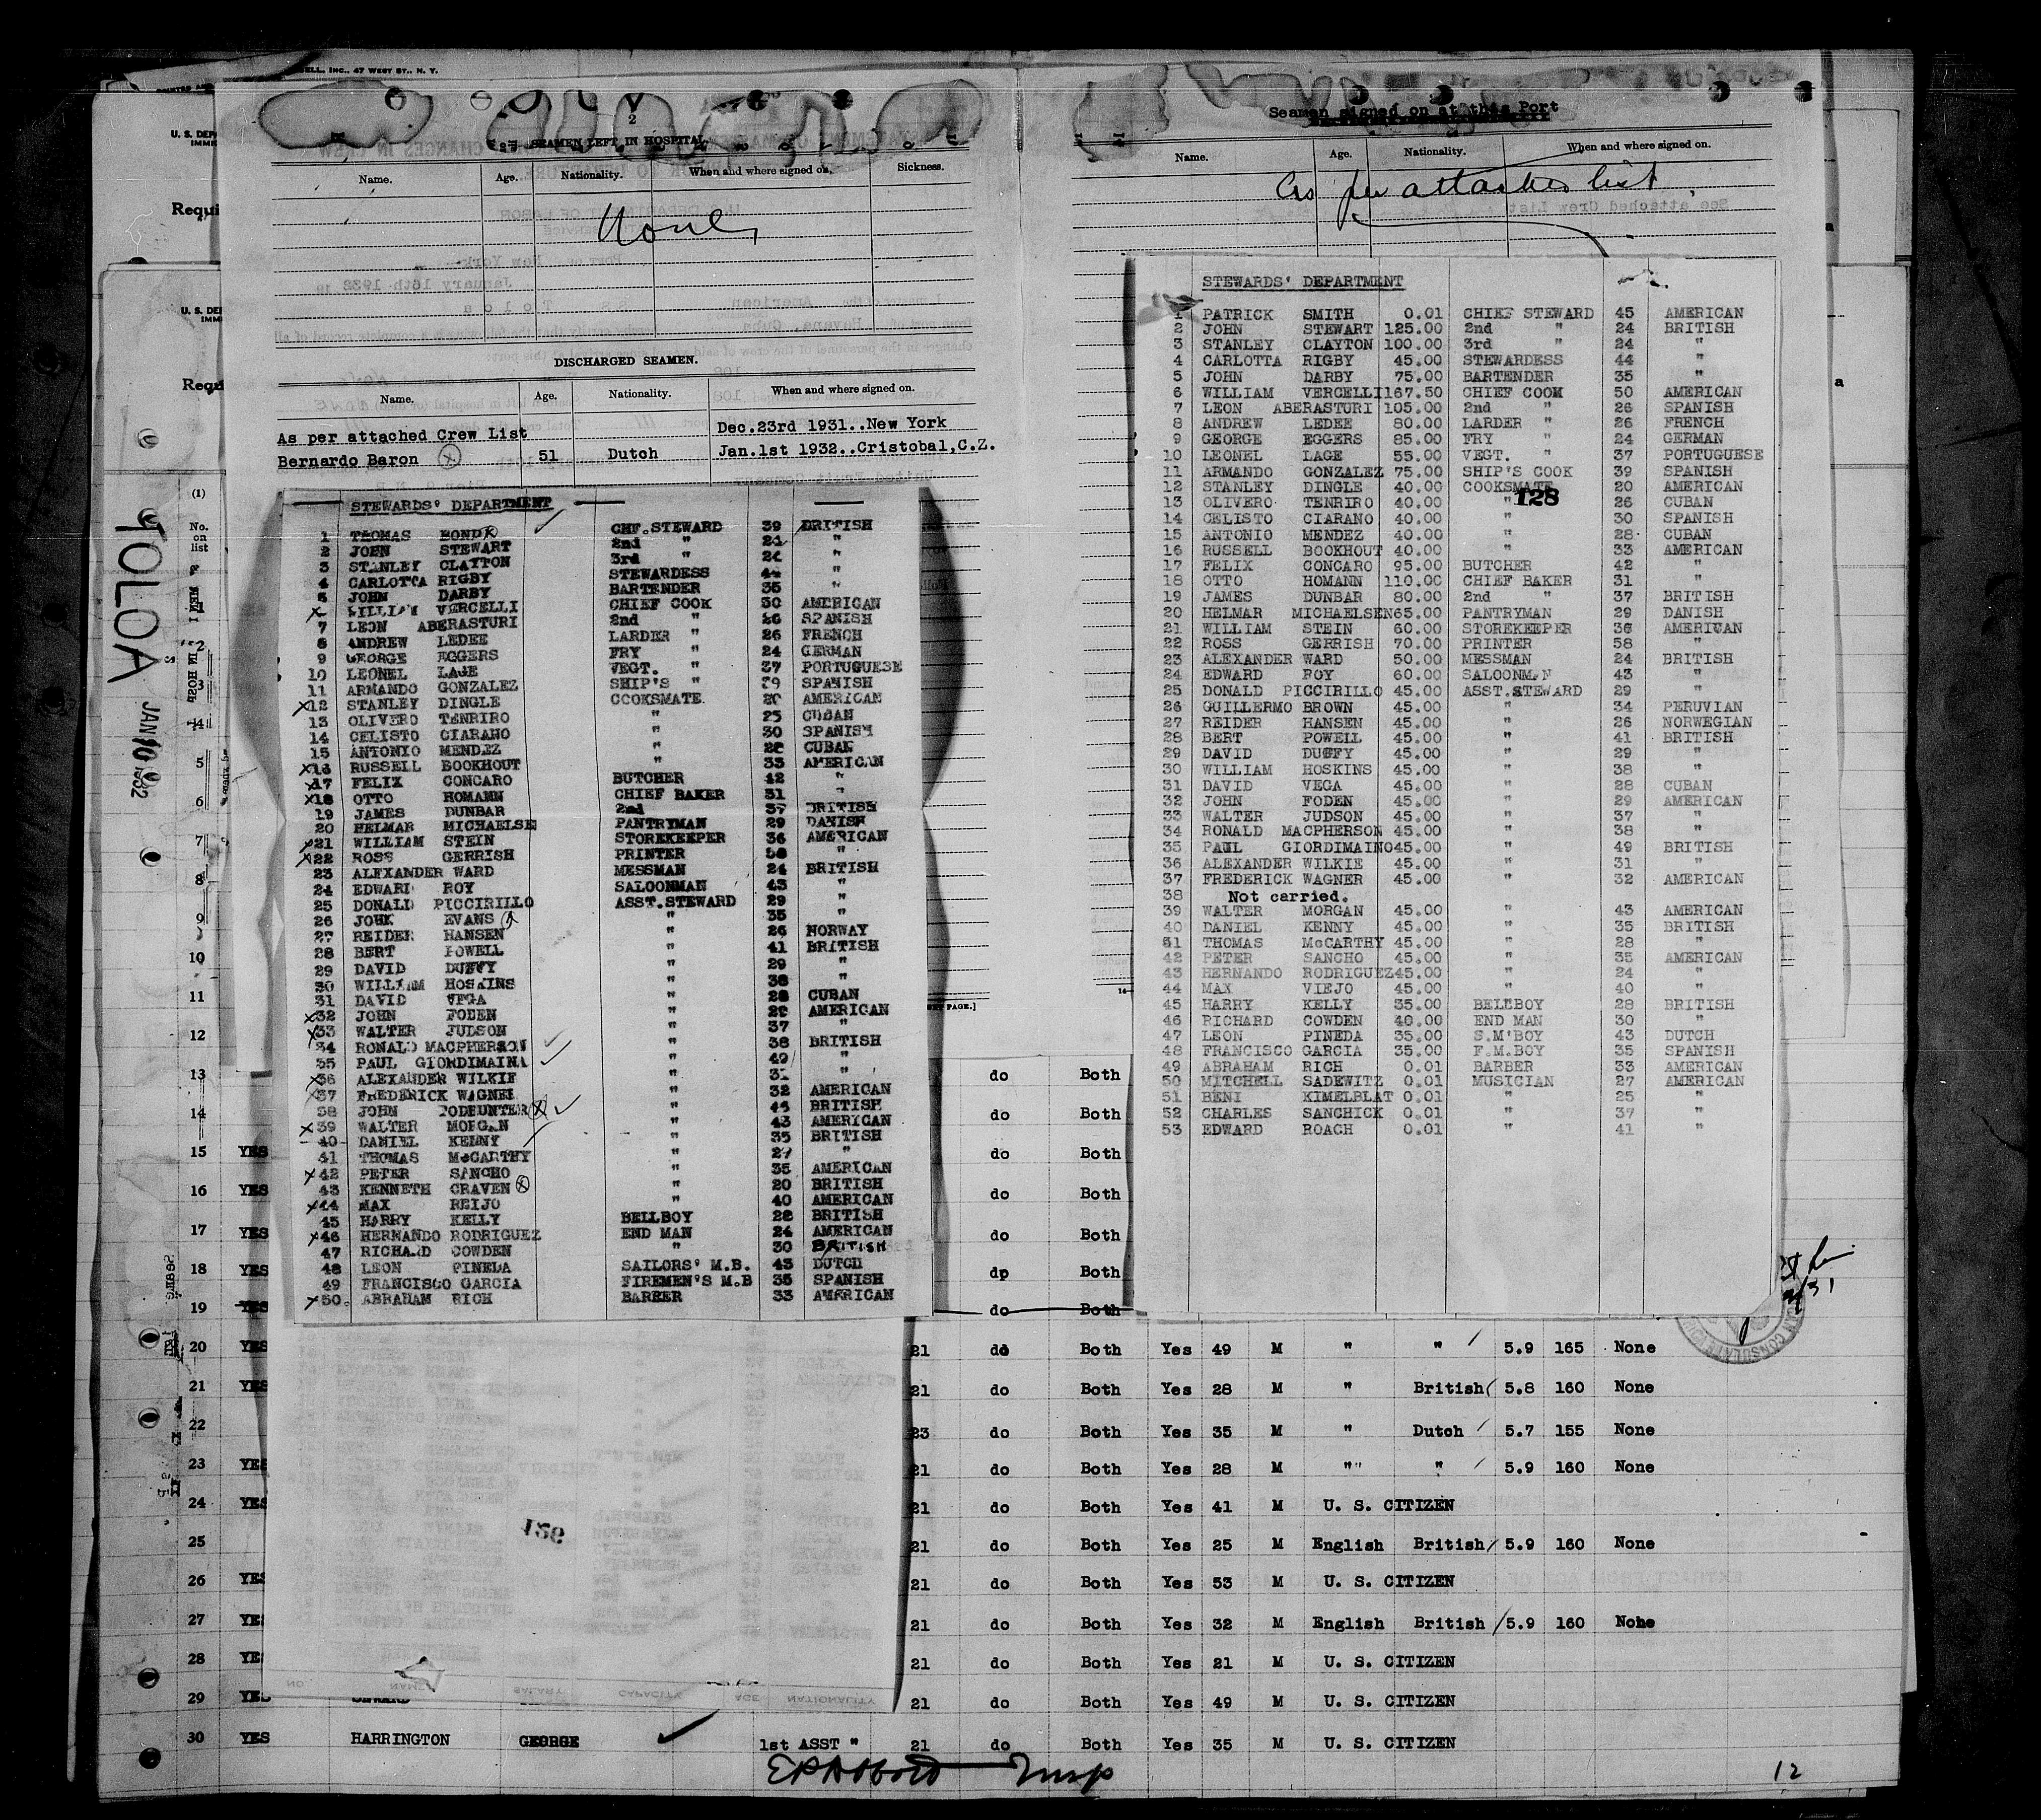 BELL, INC., 47 WEST ST., N. Y.
2
SEAMEN LEFT IN HOSPITAL
Name. Age. Nationality. When and where signed on. Sickness.
None
DISCHARGED SEAMEN.
Name. Age. Nationality. When and where signed on.
As per attached Crew List Dec.23rd 1931..New York
Bernardo Baron 51 Dutch Jan.1st 1932..Cristobal,C.Z.
STEWARDS' DEPARTMENT
1 THOMAS BOND CHF.STEWARD 39 BRITISH
2 JOHN STEWART 2nd " 24 "
3 STANLEY CLAYTON 3rd " 24 "
4 CARLOTTA RIGBY STEWARDESS 44 "
5 JOHN DARBY BARTENDER 35 "
WILLIAM VERCELLI CHIEF COOK 30 AMERICAN
7 LEON ABERASTURI 2nd " 26 SPANISH
8 ANDREW LEDEE LARDER " 26 FRENCH
9 GEORGE EGGERS FRY " 24 GERMAN
10 LEONEL LAGE VEGT. " 37 PORTUGUESE
11 ARMANDO GONZALEZ SHIP'S " 39 SPANISH
12 STANLEY DINGLE COOKSMATE 20 AMERICAN
13 OLIVERO TENRIRO " 25 CUBAN
14 CELISTO CIARANO " 30 SPANISH
15 ANTONIO MENDEZ " 28 CUBAN
16 RUSSELL BOOKHOUT " 33 AMERICAN
17 FELIX CONCARO BUTCHER 42 "
18 OTTO HOMANN CHIEF BAKER 31 "
19 JAMES DUNBAR 2nd " 37 BRITISH
20 HELMAR MICHAELSE PANTRYMAN 29 DANISH
21 WILLIAM STEIN STOREKEEPER 36 AMERICAN
22 ROSS GERRISH PRINTER 58 "
23 ALEXANDER WARD MESSMAN 24 BRITISH
24 EDWARD ROY SALOONMAN 43 "
25 DONALD PICCIRILLO ASST.STEWARD 29 "
26 JOHN EVANS " 35 "
27 REIDER HANSEN " 26 NORWAY
28 BERT POWELL " 41 BRITISH
29 DAVID DUFFY " 29 "
30 WILLIAM HOSKINS " 38 "
31 DAVID VEGA " 28 CUBAN
32 JOHN FODEN " 29 AMERICAN
33 WALTER JUDSON " 37 "
34 RONALD MACPHERSON " 38 BRITISH
35 PAUL GIORDIMAINA " 49 "
36 ALEXANDER WILKIE " 31 "
37 FREDERICK WAGNER " 32 AMERICAN
38 JOHN TODHUNTER " 45 BRITISH
39 WALTER MORGAN " 43 AMERICAN
40 DANIEL KENNY " 35 BRITISH
41 THOMAS McCARTHY " 27 "
42 PETER SANCHO " 35 AMERICAN
43 KENNETH CRAVEN " 20 BRITISH
44 MAX REIJO " 40 AMERICAN
45 HARRY KELLY BELLBOY 28 BRITISH
46 HERNANDO RODRIGUEZ END MAN 24 AMERICAN
47 RICHARD COWDEN " 30 BRITISH
48 LEON PINEDA SAILORS' M.B. 43 DUTCH
49 FRANCISCO GARCIA FIREMEN'S M.B 35 SPANISH
50. ABRAHAM RICH BARBER 33 AMERICAN
Seamen signed on at this Port
Name. Age. Nationality. When and where signed on.
As per attached list
STEWARDS' DEPARTMENT
1 PATRICK SMITH 0.01 CHIEF STEWARD 45 AMERICAN
2 JOHN STEWART 125.00 2nd " 24 BRITISH
3 STANLEY CLAYTON 100.00 3rd " 24 "
4 CARLOTTA RIGBY 45.00 STEWARDESS 44 "
5 JOHN DARBY 75.00 BARTENDER 35 "
6 WILLIAM VERCELLI 167.50 CHIEF COOK 50 AMERICAN
7 LEON ABERASTURI 105.00 2nd " 26 SPANISH
8 ANDREW LEDEE 80.00 LARDER " 26 FRENCH
9 GEORGE EGGERS 85.00 FRY " 24 GERMAN
10 LEONEL LAGE 55.00 VEGT. " 37 PORTUGUESE
11 ARMANDO GONZALEZ 75.00 SHIP'S COOK 39 SPANISH
12 STANLEY DINGLE 40.00 COOKSMATE 20 AMERICAN
128
13 OLIVERO TENRIRO 40.00 " 26 CUBAN
14 CELISTO CIARANO 40.00 " 30 SPANISH
15 ANTONIO MENDEZ 40.00 " 28 CUBAN
16 RUSSELL BOOKHOUT 40.00 " 33 AMERICAN
17 FELIX CONCARO 95.00 BUTCHER 42 "
18 OTTO HOMANN 110.00 CHIEF BAKER 31 "
19 JAMES DUNBAR 80.00 2nd " 37 BRITISH
20 HELMAR MICHAELSEN 65.00 PANTRYMAN 29 DANISH
21 WILLIAM STEIN 60.00 STOREKEEPER 36 AMERICAN
22 ROSS GERRISH 70.00 PRINTER 58 "
23 ALEXANDER WARD 50.00 MESSMAN 24 BRITISH
24 EDWARD ROY 60.00 SALOONMAN 43 "
25 DONALD PICCIRILLO 45.00 ASST.STEWARD 29 "
26 GUILLERMO BROWN 45.00 " 34 PERUVIAN
27 REIDER HANSEN 45.00 " 26 NORWEGIAN
28 BERT POWELL 45.00 " 41 BRITISH
29 DAVID DUFFY 45.00 " 29 "
30 WILLIAM HOSKINS 45.00 " 38 "
31 DAVID VEGA 45.00 " 28 CUBAN
32 JOHN FODEN 45.00 " 29 AMERICAN
33 WALTER JUDSON 45.00 " 37 "
34 RONALD MACPHERSON 45.00 " 38 "
35 PAUL GIORDIMAINO 45.00 " 49 BRITISH
36 ALEXANDER WILKIE 45.00 " 31 "
37 FREDERICK WAGNER 45.00 " 32 AMERICAN
38 Not carried.
39 WALTER MORGAN 45.00 " 43 AMERICAN
40 DANIEL KENNY 45.00 " 35 BRITISH
41 THOMAS McCARTHY 45.00 " 28 "
42 PETER SANCHO 45.00 " 35 AMERICAN
43 HERNANDO RODRIGUEZ 45.00 " 24 "
44 MAX VIEJO 45.00 " 40 "
45 HARRY KELLY 35.00 BELLBOY 28 BRITISH
46 RICHARD COWDEN 40.00 END MAN 30 "
47 LEON PINEDA 35.00 S.M'BOY 43 DUTCH
48 FRANCISCO GARCIA 35.00 F.M.BOY 35 SPANISH
49 ABRAHAM RICH 0.01 BARBER 33 AMERICAN
50 MITCHELL SADEWITZ 0.01 MUSICIAN 27 AMERICAN
51 BENI KIMELBLAT 0.01 " 25 "
52 CHARLES SANCHICK 0.01 " 37 "
53 EDWARD ROACH 0.01 " 41 "
TOLOA JAN 10 1932
(1)
No. on list
2
3
4
5
6
7
8
9
10
11
12
13 do Both
14 do Both
15 YES do Both
16 YES do Both
17 YES do Both
18 YES dp Both
19 YES do Both
20 YES 21 do Both Yes 49 M " " 5.9 165 None
21 YES 21 do Both Yes 28 M " British 5.8 160 None
22 23 do Both Yes 35 M " Dutch 5.7 155 None
23 YES 21 do Both Yes 28 M "" " 5.9 160 None
24 YES 21 do Both Yes 41 M U. S. CITIZEN
25 21 do Both Yes 25 M English British 5.9 160 None
26 YES 21 do Both Yes 53 M U. S. CITIZEN
27 YES 21 do Both Yes 32 M English British 5.9 160 None
28 YES 21 do Both Yes 21 M U. S. CITIZEN
29 YES 21 do Both Yes 49 M U. S. CITIZEN
30 YES HARRINGTON GEORGE 1st ASST " 21 do Both Yes 35 M U. S. CITIZEN
139
12